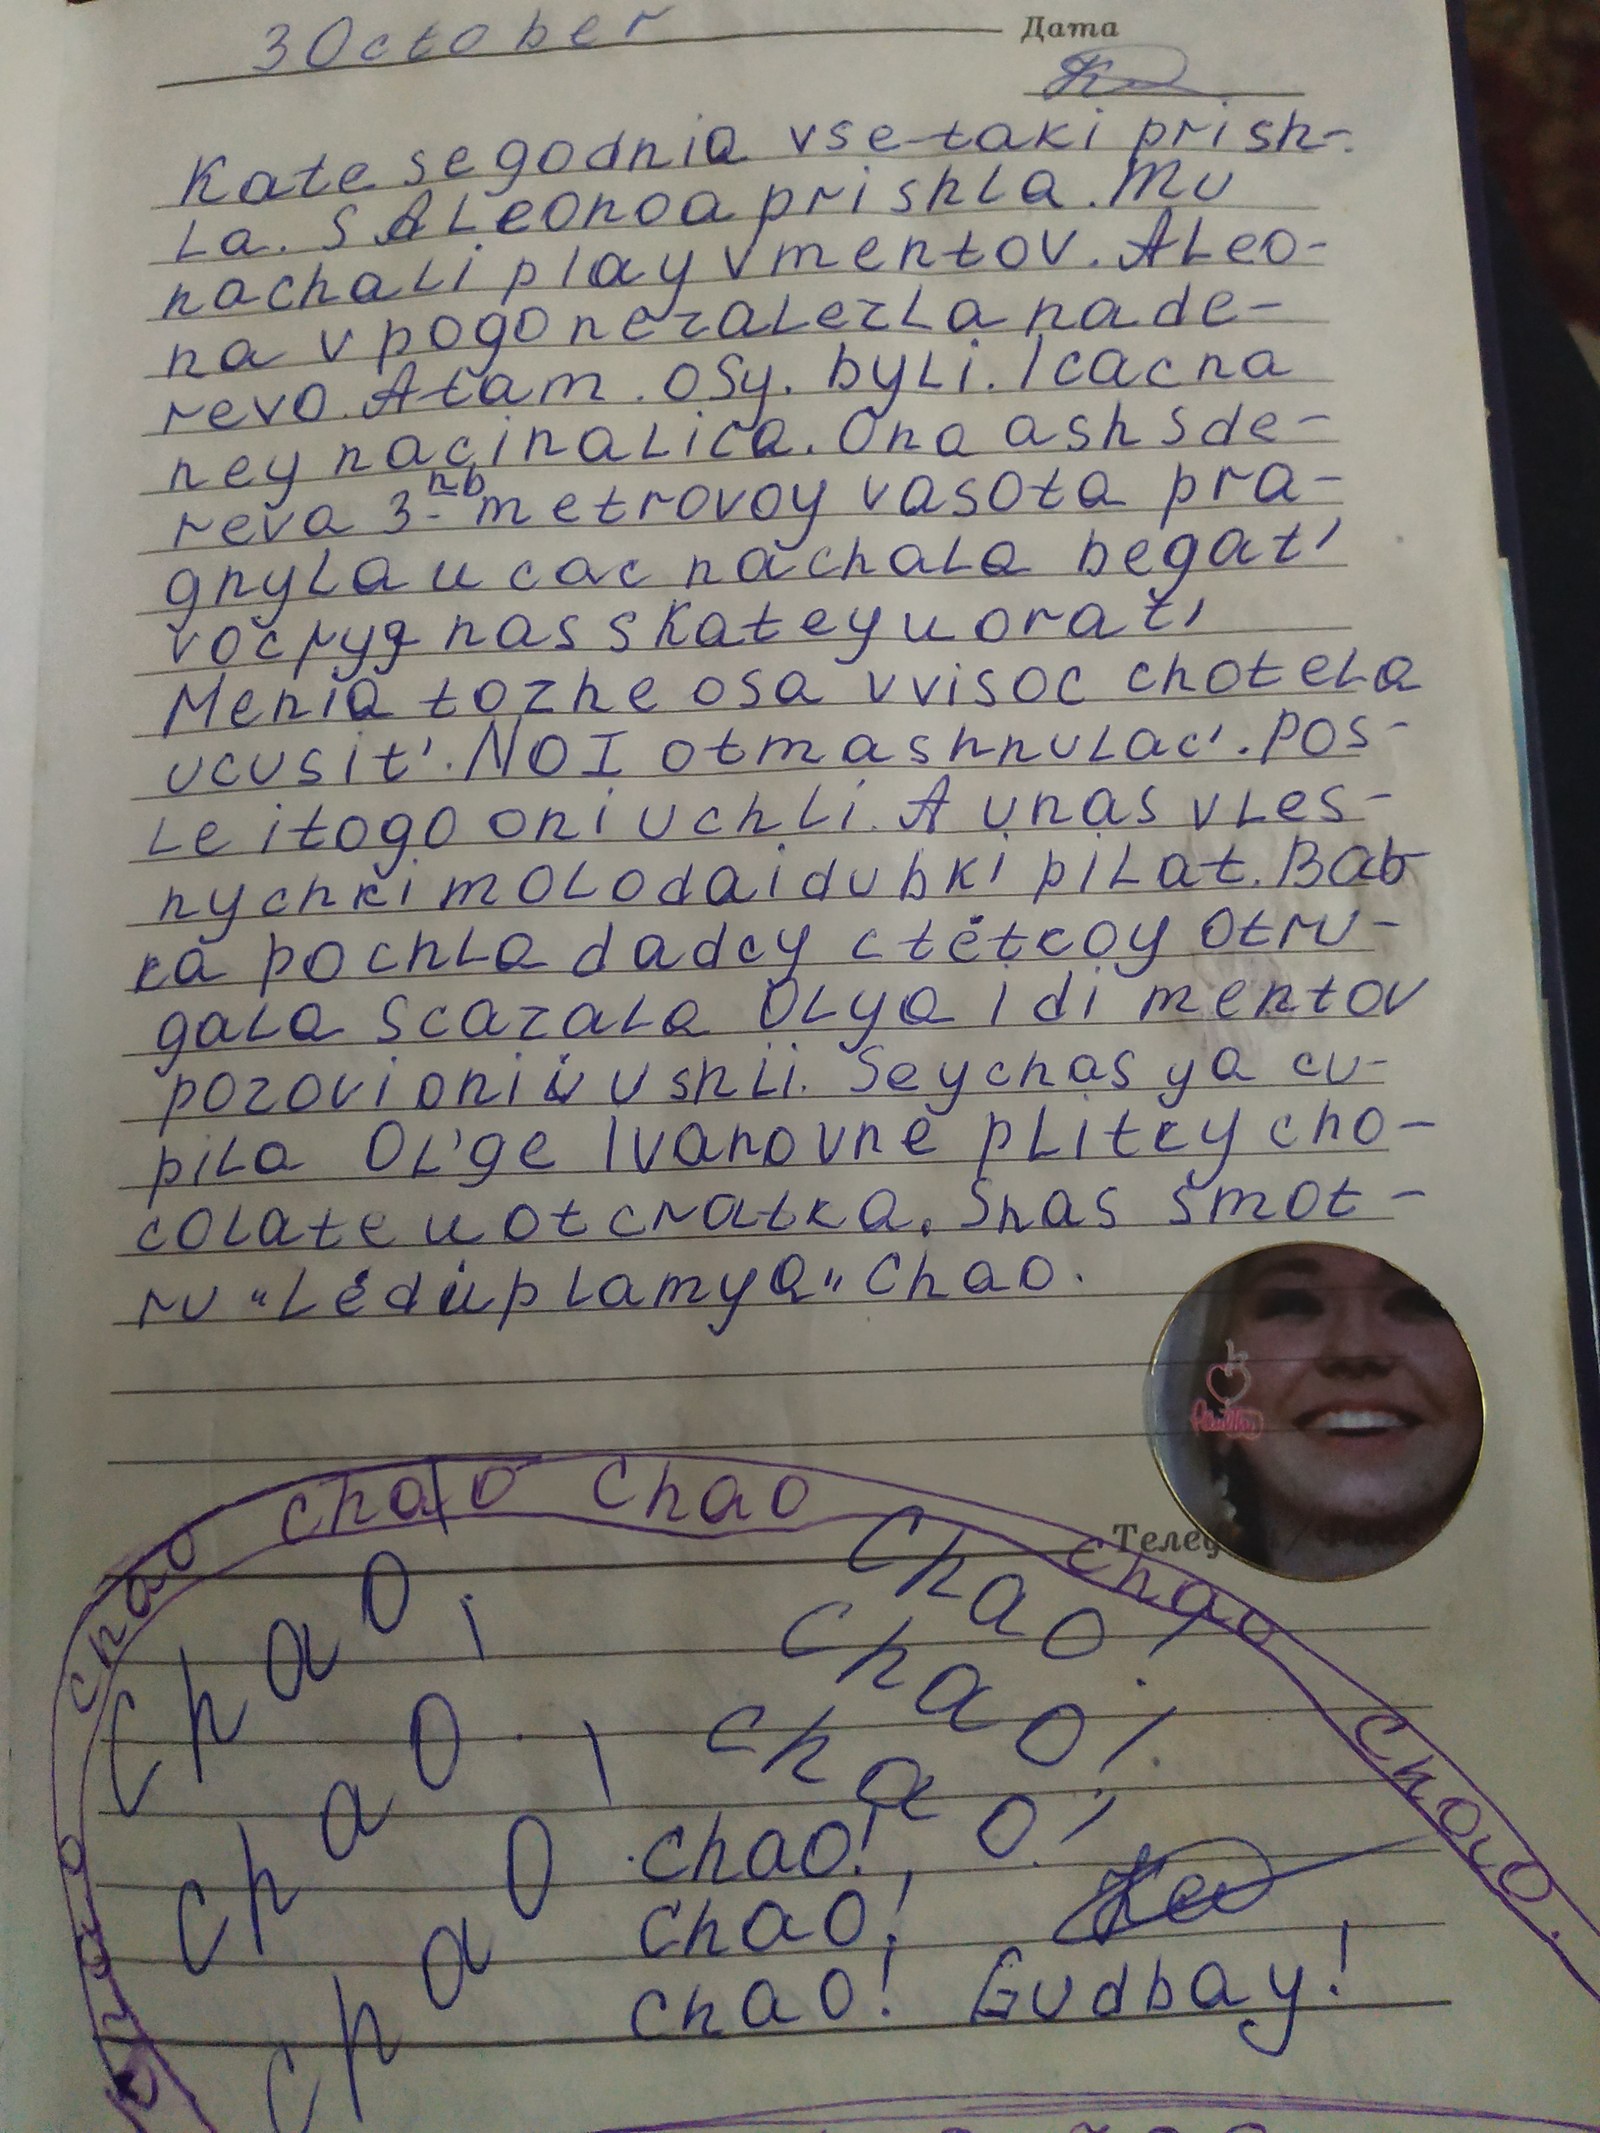 3 October
Дата
Kate segodnia vse-taki prish-
la. S ALeonoa prishla. Mu
nachali play v mentov. ALeo-
na v pogone zaLezla na de-
revo. A tam. osy. byLi. I cac na
ney nacinaLica. Ona ash s de-
reva 3-nb metrovoy vasota pra-
gnyla u cac nachala begat'
vocryg nas s Kateyu orat'
Menia tozhe osa v visoc chotela
ucusit'. NO I otmashnulac'. Pos-
Le itogo oni uchLi. A unas v Les-
nychki moLodai dubki piLat. Bab
ka pochLa dadcy c tëtcoy otru-
gaLa scazaLa OLya idi mentov
pozovi oni ü ushLi. Seychas ya cu-
piLa OL'ge Ivanovne pLitcy cho-
coLate u otcratka. Shas smot-
ru "Lëd ü plamya" Chao.
chao chao chao chao chao chao
Chao!
Chao!
Chao
Chao
Chao!
Chao!
Chao!
Chao!
Chao!
Chao!
Gudbay!